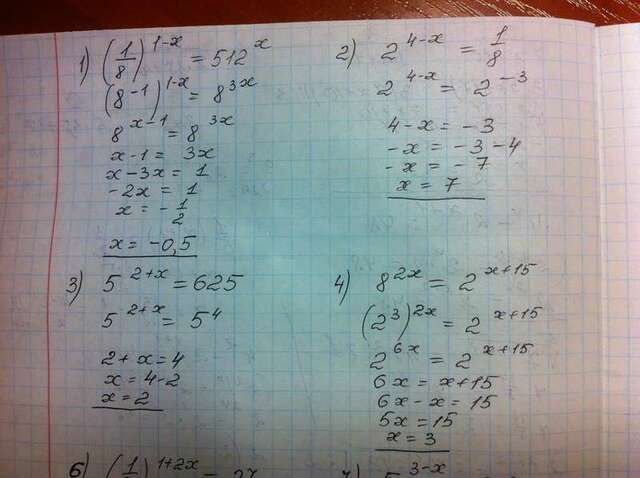 1) (1/8)^(1-x) = 512^x
(8^-1)^(1-x) = 8^(3x)
8^(x-1) = 8^(3x)
x-1 = 3x
x-3x = 1
-2x = 1
x = -1/2
x = -0,5
2) 2^(4-x) = 1/8
2^(4-x) = 2^(-3)
4-x = -3
-x = -3-4
-x = -7
x = 7
3) 5^(2+x) = 625
5^(2+x) = 5^4
2+x=4
x=4-2
x=2
4) 8^(2x) = 2^(x+15)
(2^3)^(2x) = 2^(x+15)
2^(6x) = 2^(x+15)
6x = x+15
6x-x = 15
5x=15
x=3
6) (1/)^(1+2x) = 27
5^(3-x)